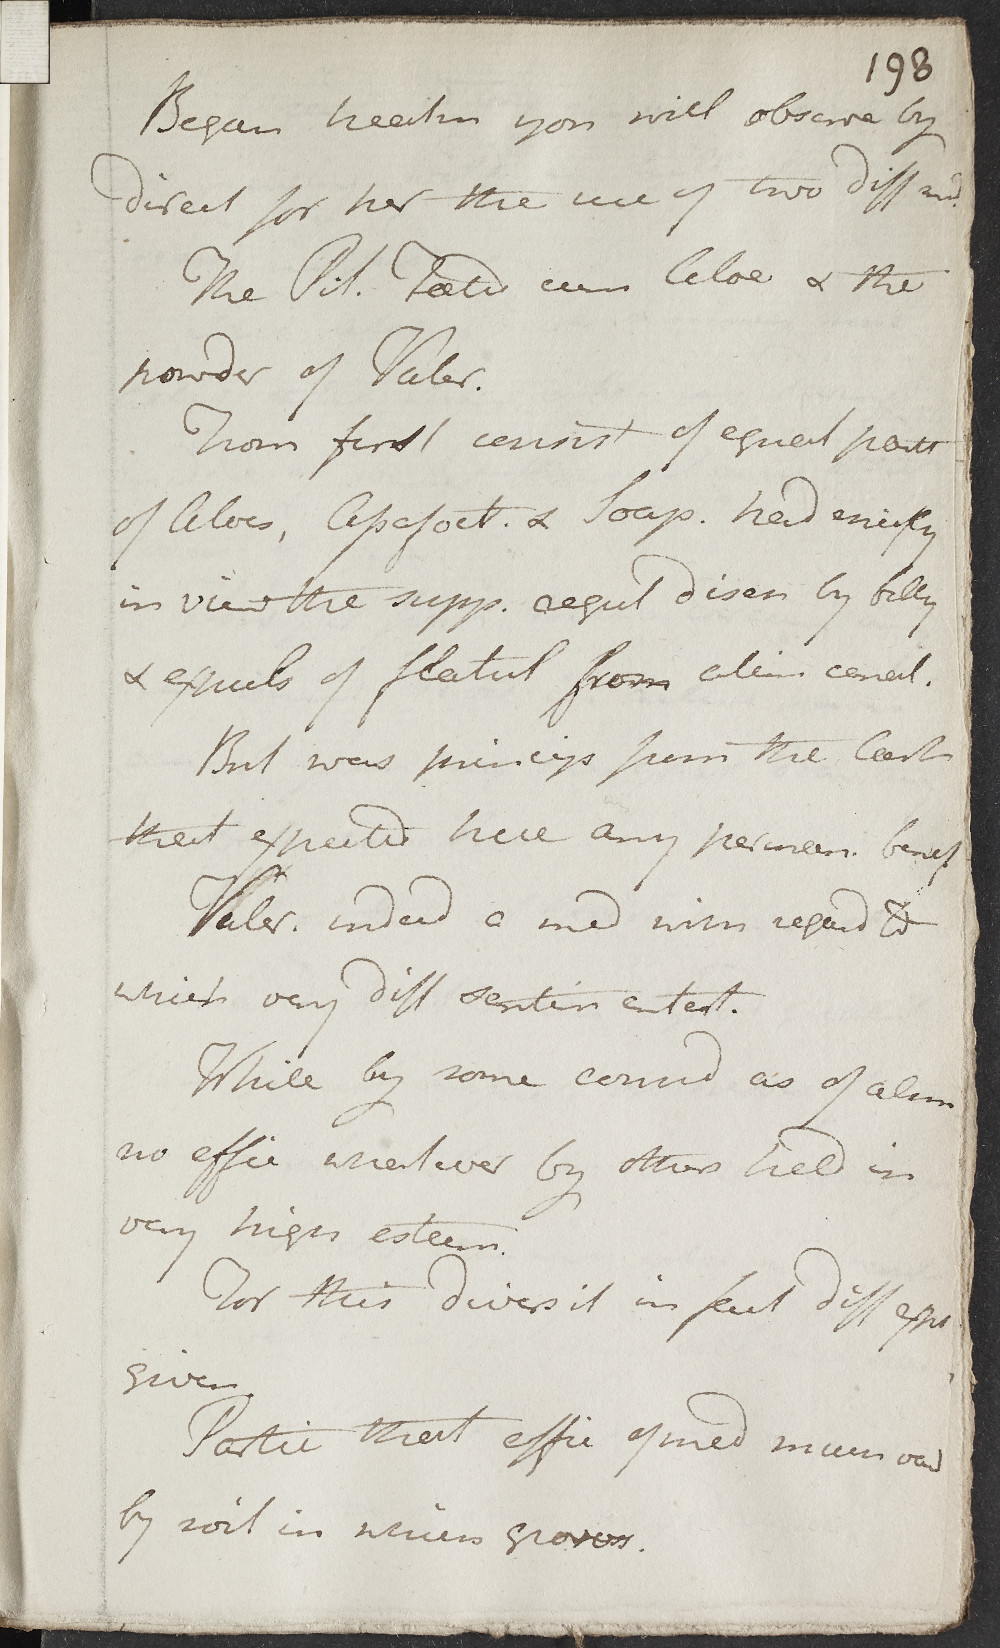 198
Began treatm you will observe by
direct for her the use of two diff med.
The Pil. Foetid cum Aloe & the
powder of Valer.
From first consist of equal parts
of Aloes, Asafoet. & Soap. had chiefly
in view the supp. regul disch by belly
& expuls of flatul from alim canal.
But was princip from the last
that expected here any perman. benef.
Valer. indeed a med with regard to
which very diff sentim entert.
While by some consid as of alm
no effic whatever by others held in
very high esteem.
For this diversit in sent diff expl
given
Partic that effic of med much var
by soil in which grows.